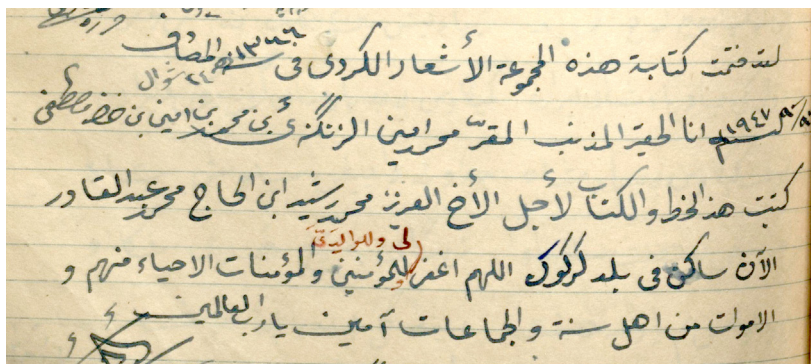 لقد فتمت كتابة هذه المجموعة الأشعار الكردى فى ٢٤ شوال سنة ١٣٦٦ المصادف
١٩٤٧ انا الحقير المذنب المقرّ محمد امين الزنگنه ئى بن محمد بن امين بن خضر مصطفى
كتبت هذ الخط والكتاب لأجل الأخ العزيز محمد رشيد ابن الحاج محمد عبدالقادر
الآن ساكن فى بلد كركوك اللهم اغفر لى وللوالدى وللمؤمنين والمؤمنات الاحياء منهم و
الاموات من اهل سنة والجماعات آمين يارب العالمين